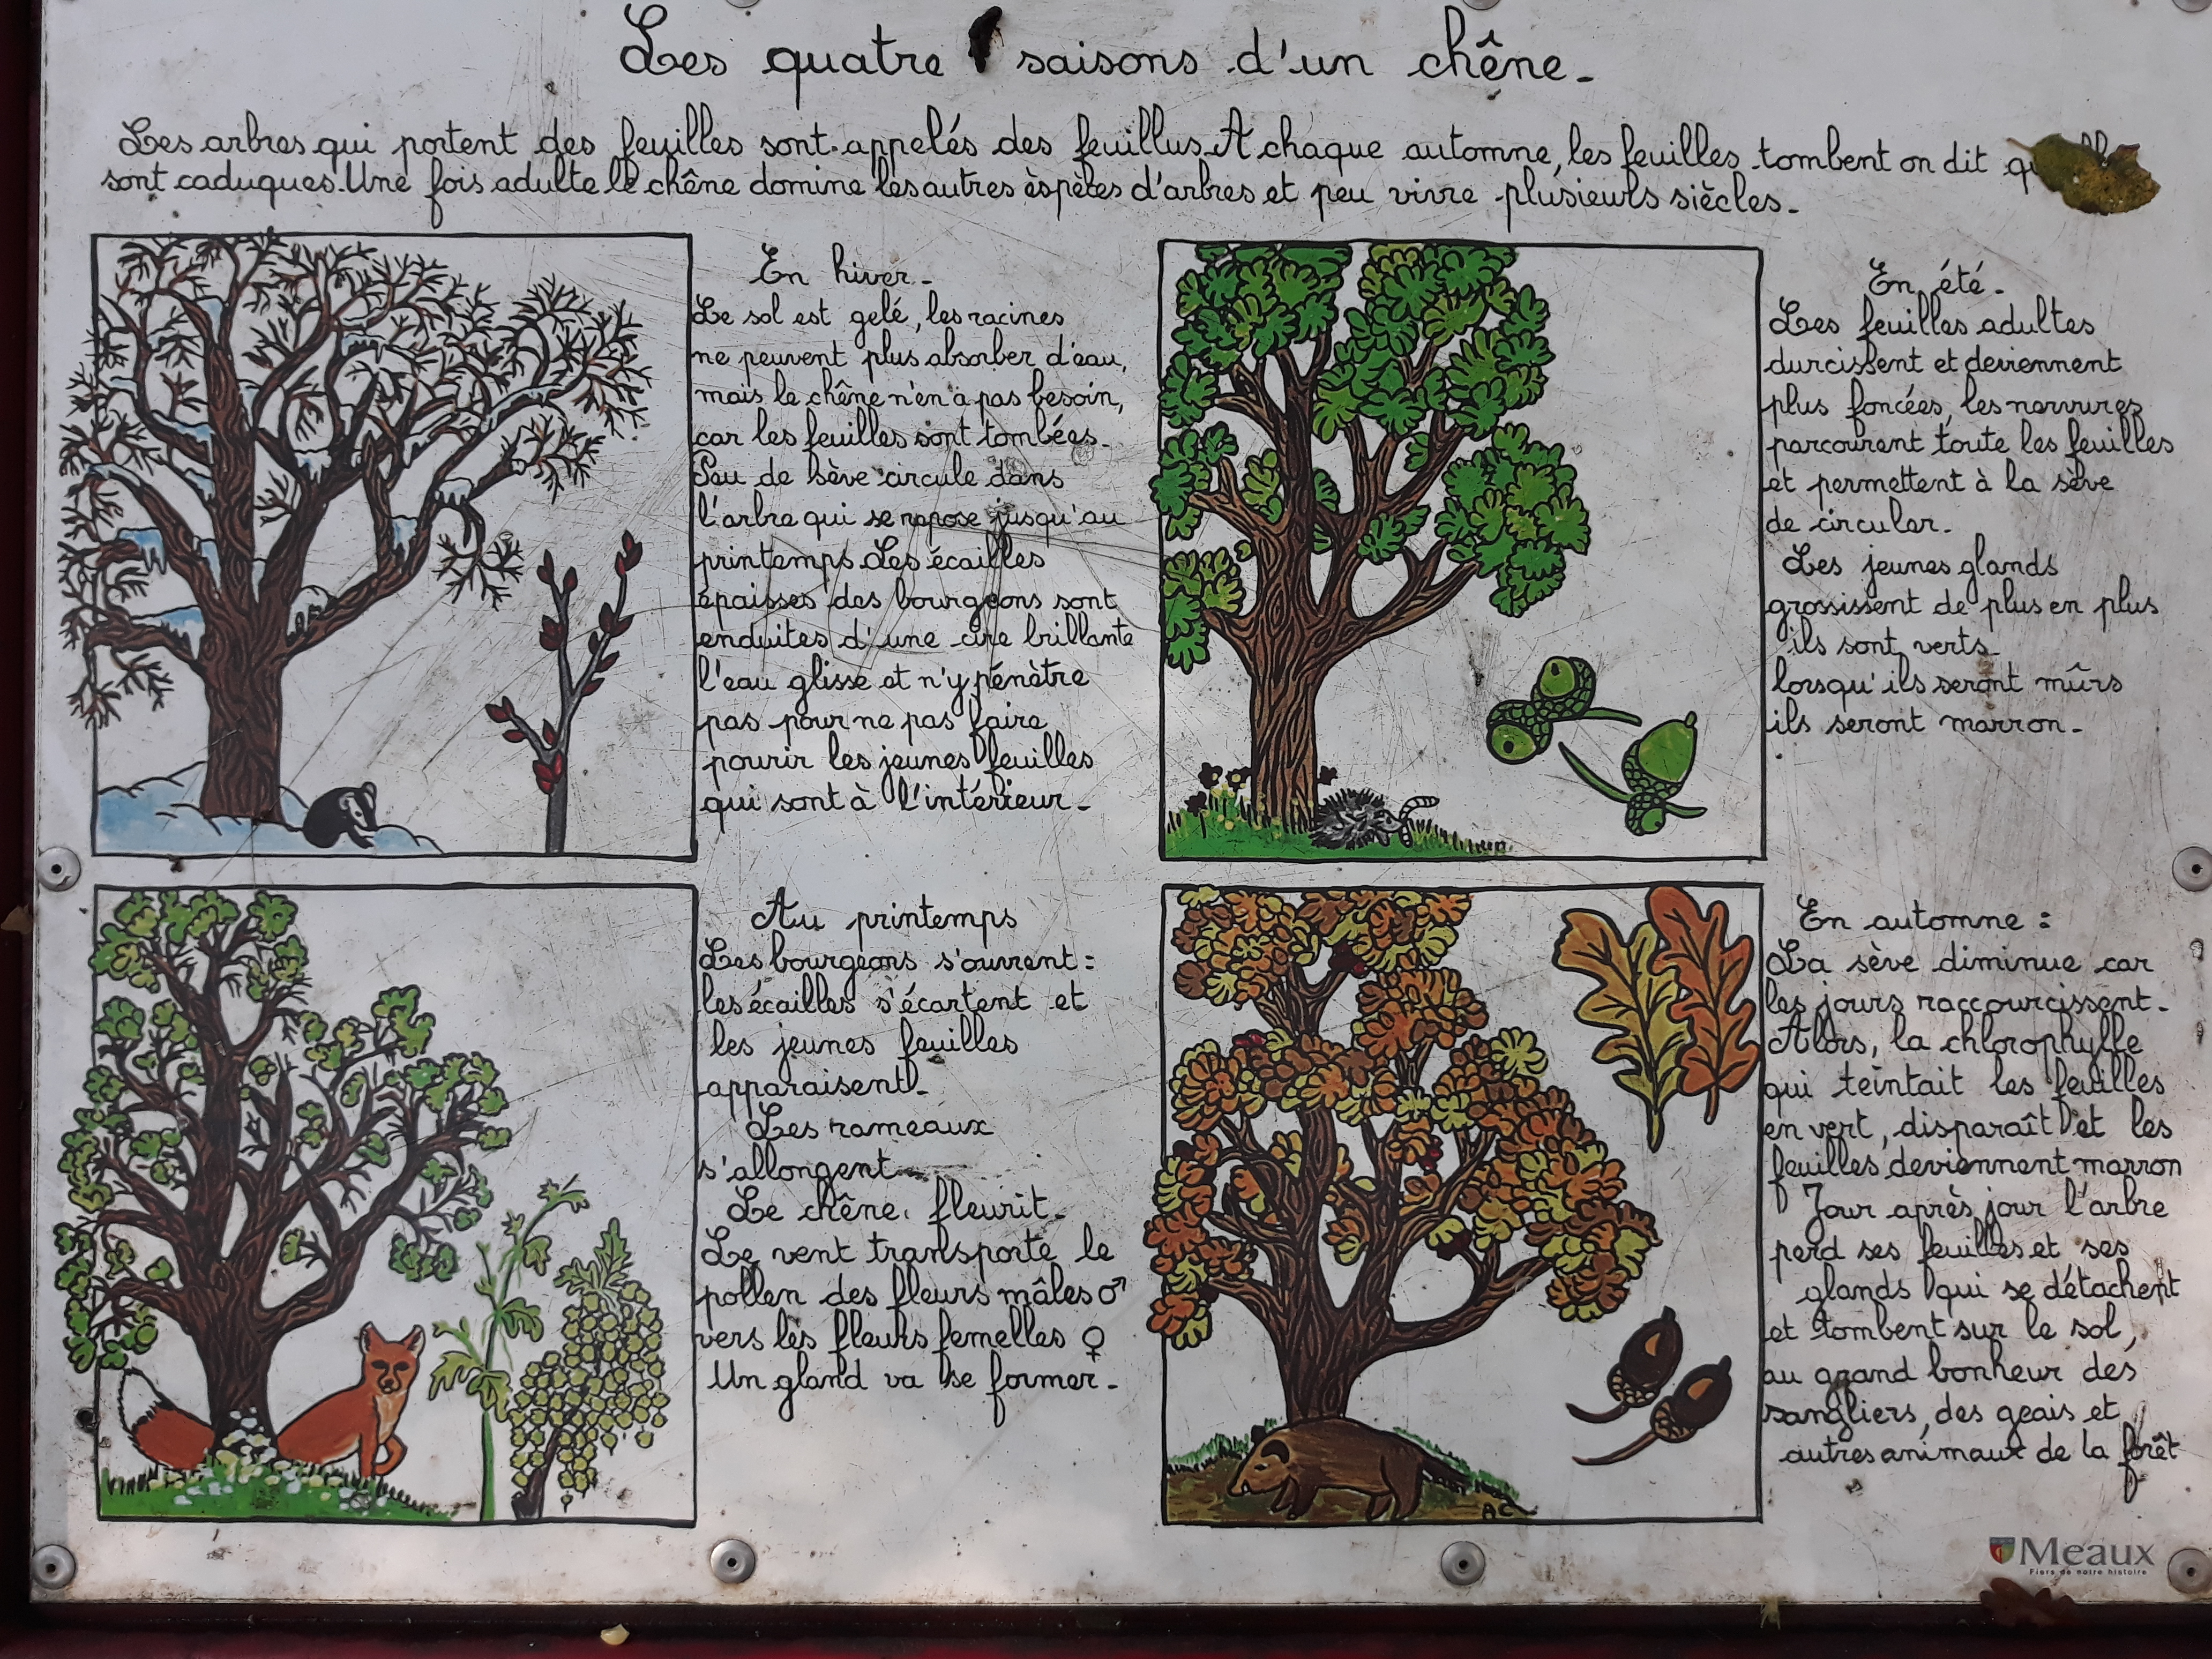 Les quatre saisons d'un chêne.
Les arbres qui portent des feuilles sont appelés des feuillus. A chaque automne, les feuilles tombent on dit
sont caduques. Une fois adulte le chêne domine les autres èspètes d'arbres et peu vivre plusieurs siècles.
En hiver.
Le sol est gelé, les racines
ne peuvent plus absorber d'eau,
mais le chêne n'en a pas besoin,
car les feuilles sont tombées.
Peu de sève circule dans
l'arbre qui se repose jusqu'au
printemps. Les écailles
épaisses des bourgeons sont
enduites d'une cire brillante
l'eau glisse et n'y pénètre
pas pour ne pas faire
pourir les jeunes feuilles
qui sont à l'intérieur.
En été.
Les feuilles adultes
durcissent et deviennent
plus foncées, les norvures
parcourent toute les feuilles
et permettent à la sève
de circuler.
Les jeunes glands
grossissent de plus en plus
ils sont verts.
lorsqu'ils seront mûrs
ils seront marron.
Au printemps
Les bourgeons s'ouvrent :
les écailles s'écartent et
les jeunes feuilles
apparaisent.
Les rameaux
s'allongent.
Le chêne fleurit.
Le vent transporte le
pollen des fleurs mâles ♂
vers les fleurs femelles ♀
Un gland va se former.
En automne :
La sève diminue car
les jours raccourcissent.
Alors, la chlorophylle
qui teintait les feuilles
en vert, disparaît et les
feuilles deviennent marron
Jour après jour l'arbre
perd ses feuilles et ses
glands qui se détachent
et tombent sur le sol,
au grand bonheur des
sangliers, des geais et
autres animaux de la forêt
AC
Meaux
Fiers de notre histoire